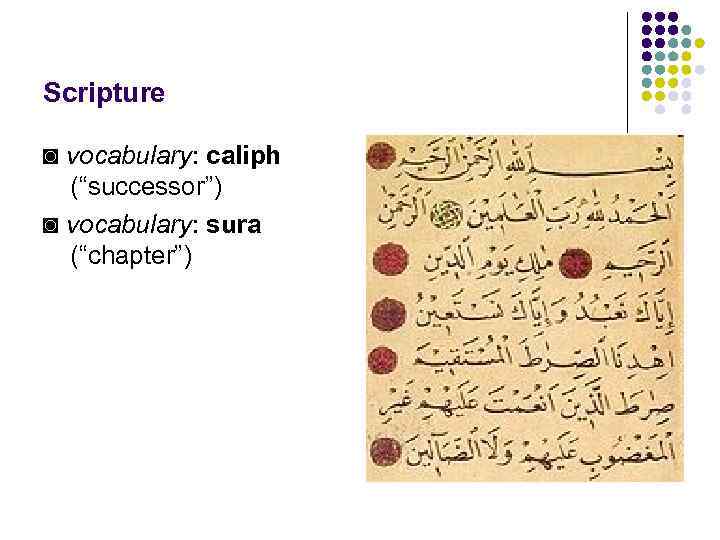 Scripture
◙ vocabulary: caliph
(“successor”)
◙ vocabulary: sura
(“chapter”)
بِسْمِ اللهِ الرَّحْمٰنِ الرَّحِيمِ
الْحَمْدُ لِلهِ رَبِّ الْعَالَمِينَ الرَّحْمٰنِ
الرَّحِيمِ مٰلِكِ يَوْمِ الدِّينِ
إِيَّاكَ نَعْبُدُ وَإِيَّاكَ نَسْتَعِينُ
اِهْدِنَا الصِّرَاطَ الْمُسْتَقِيمَ
صِرَاطَ الَّذِينَ أَنْعَمْتَ عَلَيْهِمْ غَيْرِ
الْمَغْضُوبِ عَلَيْهِمْ وَلَا الضَّالِّينَ